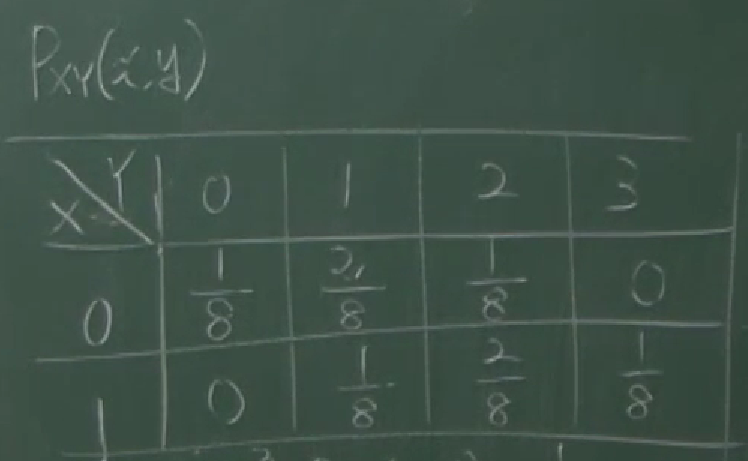 P_XY(x,y)
X\Y 0 1 2 3
0 1/8 2/8 1/8 0
1 0 1/8 2/8 1/8